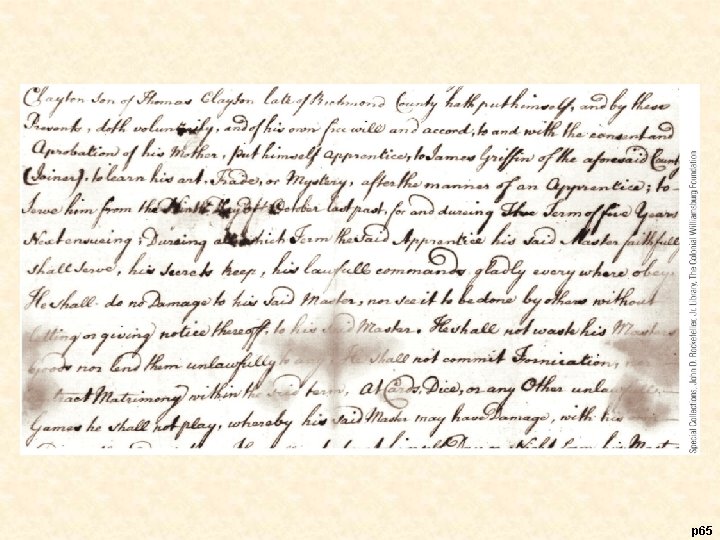 Clayton Son of Thomas Clayton late of Richmond County hath put himself, and by these
Presents, doth voluntarily, and of his own free will and accord, to and with the consent and
Aprobation of his Mother, put himself Apprentice, to James Griffin of the aforesaid County
(Joiner). to learn his art, Trade, or Mystery, after the manner of an Apprentice; to
Serve him from the Ninth Day of October last past, for and dureing The Term of five Years
Next ensueing; Dureing all which Term the Said Apprentice his said Master faithfully
shall serve, his secrets keep, his lawfull commands gladly every where obey.
He shall do no Damage to his said Master, nor see it to be done by others without
letting or giving notice thereoff, to his said Master. He shall not waste his Masters
Goods nor lend them unlawfully to any. He shall not commit Fornication,
Contract Matrimony within the said term, At Cards, Dice, or any Other unlawfull
Games he shall not play, whereby his said Master may have Damage, with his
Special Collections, John D. Rockefeller, Jr. Library, The Colonial Williamsburg Foundation
p65